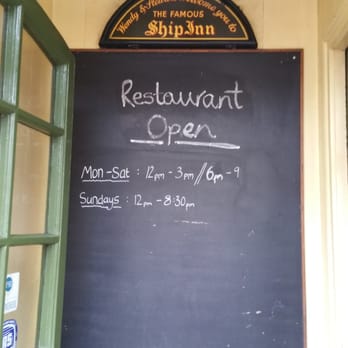 Wendy & Steven welcome you to
THE FAMOUS
Ship Inn
Restaurant
Open
Mon-Sat : 12pm - 3pm // 6pm - 9
Sundays : 12pm - 8:30pm